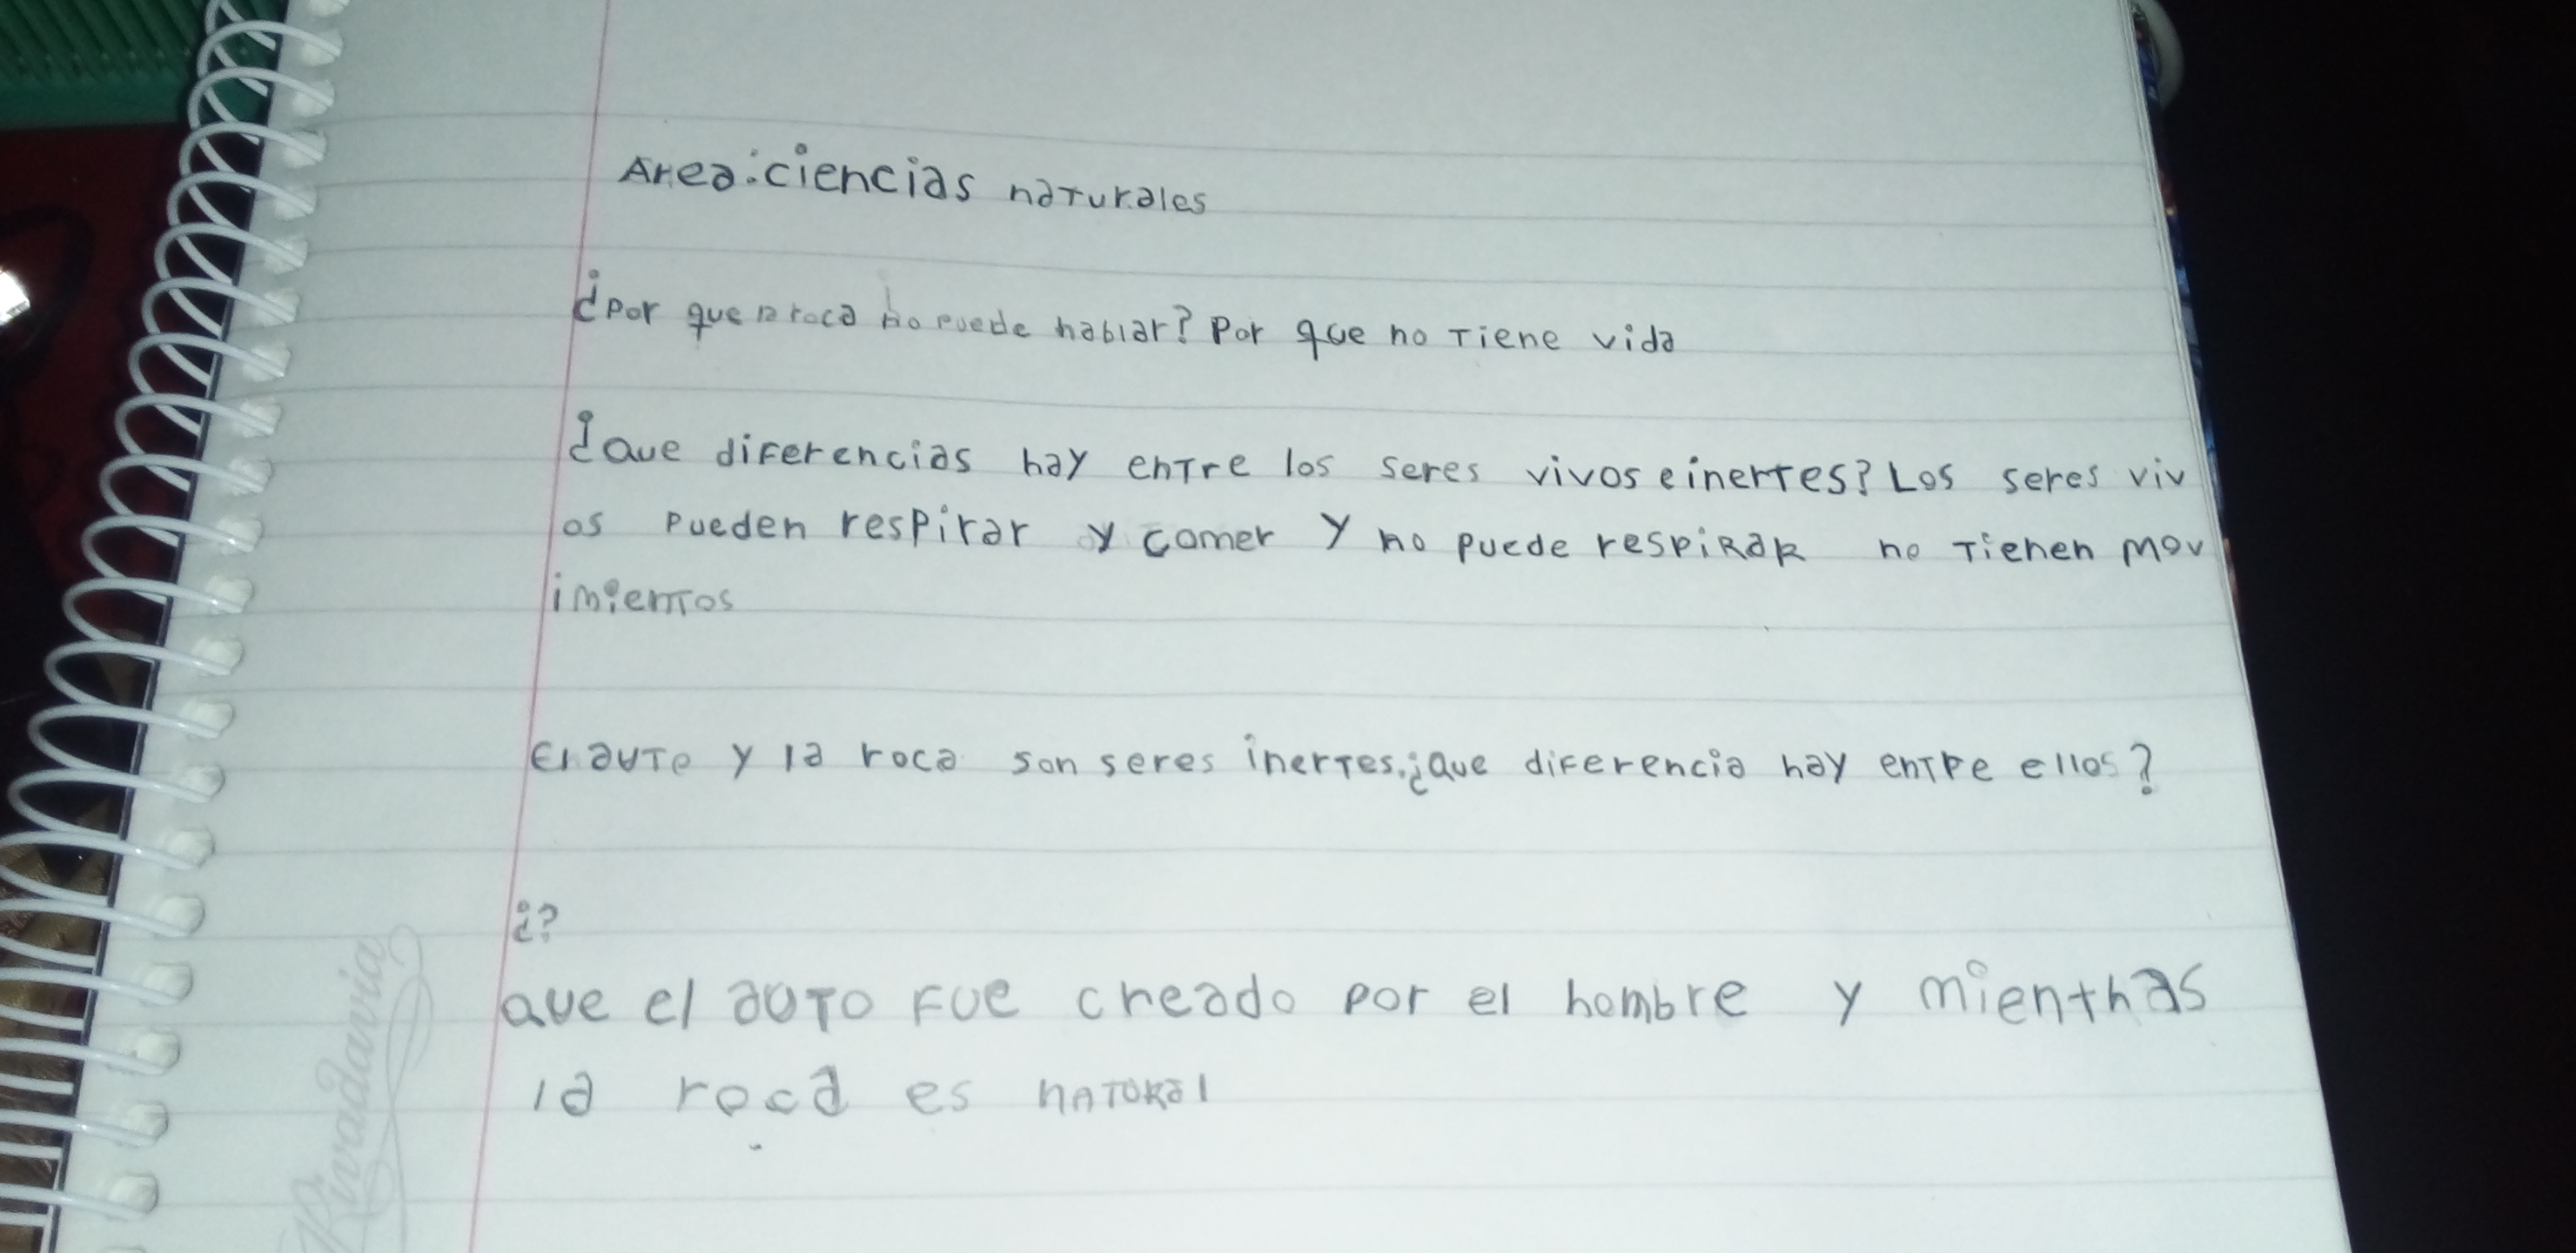 Area:ciencias naturales
¿Por que la roca no puede hablar? Por que no Tiene vida
¿Que diferencias hay entre los seres vivos e inertes? Los seres viv
os pueden respirar y comer y no puede respirar no Tienen mov
imientos
El auto y la roca son seres inertes.¿Que diferencia hay entre ellos?
¿?
Que el auto fue creado por el hombre y mienthas
la roca es natural
Rivadavia